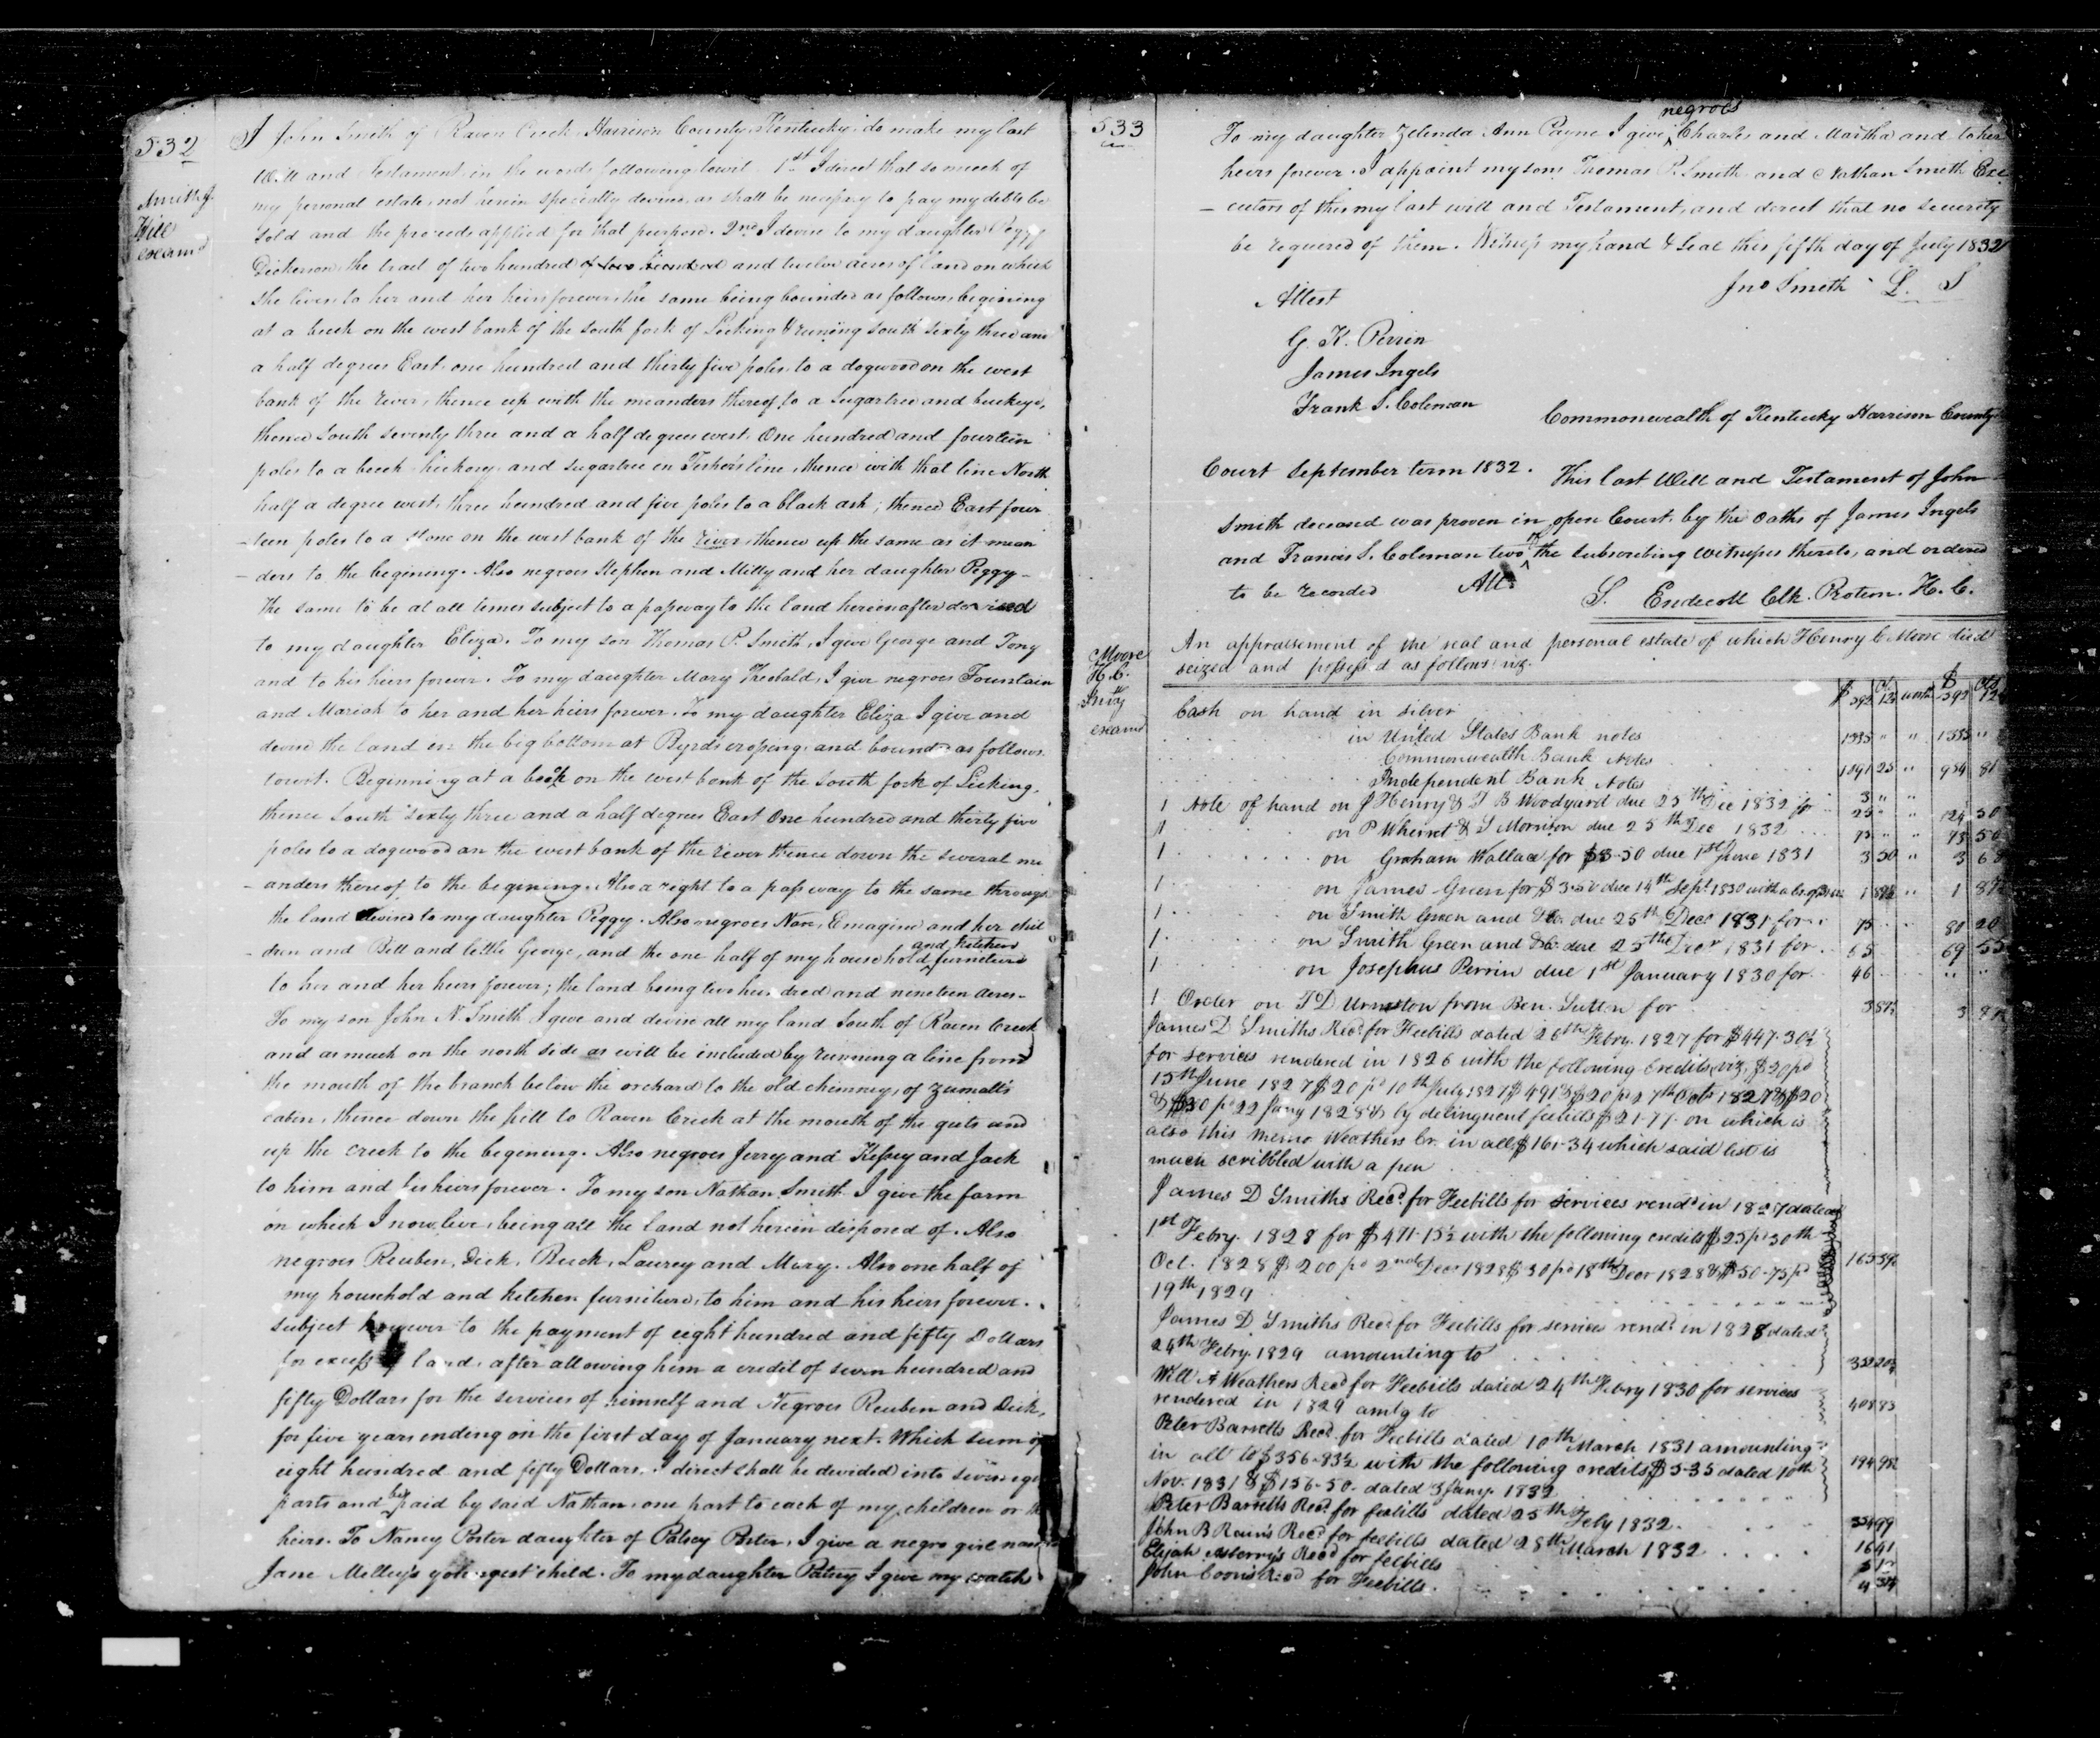 532
Smith J.
Will
examd
I John Smith of Raven Creek Harrison County Kentucky do make my last
Will and Testament in the words following towit 1st I direct that so much of
my personal estate, not herein specially devised, as shall be necessary to pay my debts be
sold and the proceeds applied for that purpose. 2nd I devise to my daughter Peggy
Dickerson, the tract of two hundred of two hundred and twelve acres of land on which
she lives, to her and her heirs forever, the same being bounded as follows, begining
at a beech on the west bank of the south fork of Licking & runing south sixty three and
a half degrees East, one hundred and thirty five poles, to a dogwood on the west
bank of the river, thence up with the meanders thereof, to a sugartree and buckeye,
thence South seventy three and a half degrees west, One hundred and fourteen
poles to a beech hickory and sugartree in line, thence with that line North
half a degree west, three hundred and five poles to a black ash; thence East four
-teen poles to a stone on the west bank of the river, thence up the same as it mean
-ders to the begining. Also negroes Stephen and Milly and her daughter Peggy -
the same to be at all times subject to a passway to the land hereinafter devised
to my daughter Eliza. To my son Thomas P. Smith, I give George and Tony
and to his heirs forever. To my daughter Mary Theobald, I give negroes Fountain
and Mariah to her and her heirs forever. To my daughter Eliza I give and
devise the land in the big bottom at Byrds crossing, and bounded as follows
towit. Beginning at a beech on the west bank of the South fork of Licking,
thence South sixty three and a half degrees East One hundred and thirty five
poles to a dogwood on the west bank of the river thence down the several me
-anders thereof to the begining. Also a right to a passway to the same through
the land devised to my daughter Peggy. Also negroes Emagine and her chil
-dren and Bill and little George, and the one half of my household and kitchen furniture
to her and her heirs forever; the land being two hundred and nineteen acres -
To my son John N. Smith I give and devise all my land South of Raven Creek
and as much on the north side as will be included by running a line from
the mouth of the branch below the orchard to the old chimney, of Zumalt's
cabin, thence down the hill to Raven Creek at the mouth of the guts and
up the creek to the begining. Also negroes Jerry and Kessey and Jack
to him and his heirs forever. To my son Nathan Smith I give the farm
on which I now live, being all the land not herein disposed of. Also
negroes Reuben, Dick, Buck, Laurey and Mary. Also one half of
my household and kitchen furniture, to him and his heirs forever.
subject however to the payment of eight hundred and fifty Dollars
for excess of land, after allowing him a credit of seven hundred and
fifty Dollars for the services of himself and Negroes Reuben and Dick,
for five years ending on the first day of January next. Which sum of
eight hundred and fifty Dollars, I direct shall be devided into seven equ
parts and be paid by said Nathan, one part to each of my children or th
heirs. To Nancy Porter daughter of Patsey Porter, I give a negro girl nam
Jane Melley's youngest child. To my daughter Patsey I give my watch
533
To my daughter Zelenda Ann Payne I give negroes Charles and Martha and to her
heirs forever. I appoint my sons Thomas P. Smith and Nathan Smith Exe
-cutors of this my last will and Testament, and direct that no security
be required of them. Witness my hand & Seal this fifth day of July 1832
Jno Smith L. S
Attest
G. K. Perrin
James Ingels
Frank S. Coleman
Commonwealth of Kentucky Harrison County
Court September term 1832. This last Will and Testament of John
Smith deceased was proven in open Court, by the oaths of James Ingels
and Francis S. Coleman two of the subscribing witnesses thereto, and ordered
to be recorded Att.
S. Endecott Clk. Protem. H. C.
Moore
H. C.
Invty
examd
An appraisement of the real and personal estate of which Henry C Moore died
seized and possess'd as follows viz.
Cash on hand in silver
in United States Bank notes 1335 " "
Commonwealth Bank Notes 1891 25 "
Independent Bank Notes 3 " "
1 Note of hand on J Henry & T B Woodyard due 25th Dec 1832 for 25
1 on P Wherret & S Morrison due 25th Dec 1832 75 73 50
1 on Graham Wallace for $3-50 due 1st June 1831 3 50 "
1 on James Green for $3-50 due 14th Sept 1830
1 on Smith Green and Co. due 25th Decr 1831 for 75 80 20
1 on Smith Green and Co due 25th Decr 1831 for 65 69 55
1 on Josephus Perrin due 1st January 1830 for 46 " "
1 Order on T D Urmston from Ben. Sutton for 3 87½
James D Smiths Recd for Feebills dated 26th Febry. 1827 for $447-30½
for services rendered in 1826 with the following credits viz, $20 pd
15th June 1827 $20 pd 10th July 1827 $20 pd 27th Octr 1827 & $20
& $30 pd 22 Jany 1828 & by delinquent feebills $21-77. on which is
also this memo Weathers Cr. in all $161-34 which said list is
much scribbled with a pen
James D Smiths Recd for Feebills for services rendd in 1827 dated
1st Febry. 1828 for $471-15½ with the following credits $25 pd 30th
Oct. 1828 $200 pd 2nd Decr 1828 $30 pd 18th Decr 1828 & $50-75 pd
19th 1829
James D Smiths Recd for Feebills for services rendd in 1828 dated
24th Febry. 1829 amounting to
Will A Weathers Recd for Feebills dated 24th Febry 1830 for services
rendered in 1829 amtg to 408 83
Peter Barretts Recd for Feebills dated 10th March 1831 amounting
in all to $356-83½ with the following credits $5-35 dated 10th
Nov. 1831 & $156-50. dated 3 Jany. 1832
Peter Barretts Recd for feebills dated 25th Feby 1832.
John B Rain's Recd for feebills dated 28th March 1832 16 41
Elijah Asberry's Recd for feebills
John Coons Recd for Feebills.